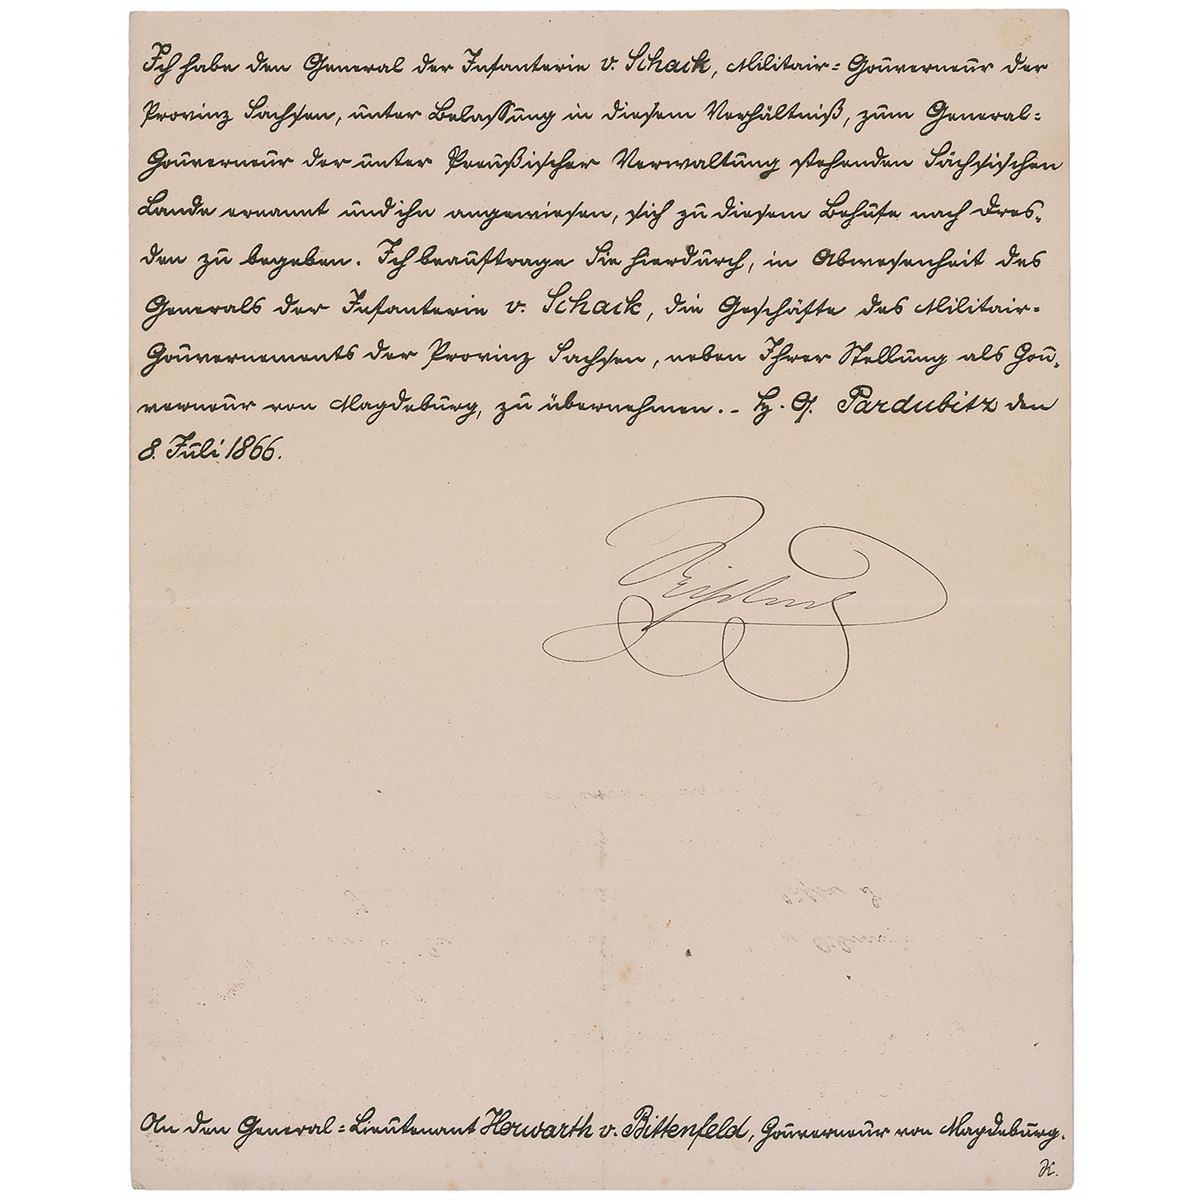 Ich habe den General der Infanterie v. Schack, Militair-Gouverneur der
Provinz Sachsen, unter Belassung in diesem Verhältniß, zum General-
Gouverneur der unter Preußischer Verwaltung stehenden Sächsischen
Lande ernannt und ihn angewiesen, sich zu diesem Behufe nach Dres-
den zu begeben. Ich beauftrage Sie hierdurch, in Abwesenheit des
Generals der Infanterie v. Schack, die Geschäfte des Militair-
Gouvernements der Provinz Sachsen, neben Ihrer Stellung als Gou-
verneur von Magdeburg, zu übernehmen. - H. Q. Pardubitz den
8. Juli 1866.
An den General-Lieutenant Herwarth v. Bittenfeld, Gouverneur von Magdeburg.